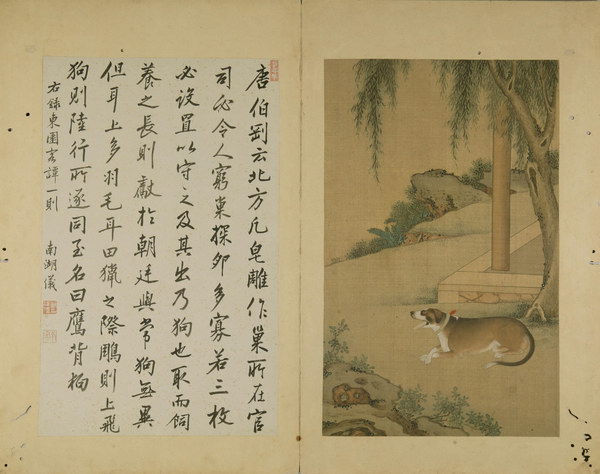 唐伯剛云北方凡皂雕作巢所在官
司必令人窮巢探卵多寡若三枚
必設置以守之及其出乃狗也取而飼
養之長則獻於朝廷與常狗無異
但耳上多羽毛耳田獵之際鵰則上飛
狗則陸行所逐同至名曰鷹背狗
右錄東園客譚一則 南湖儀